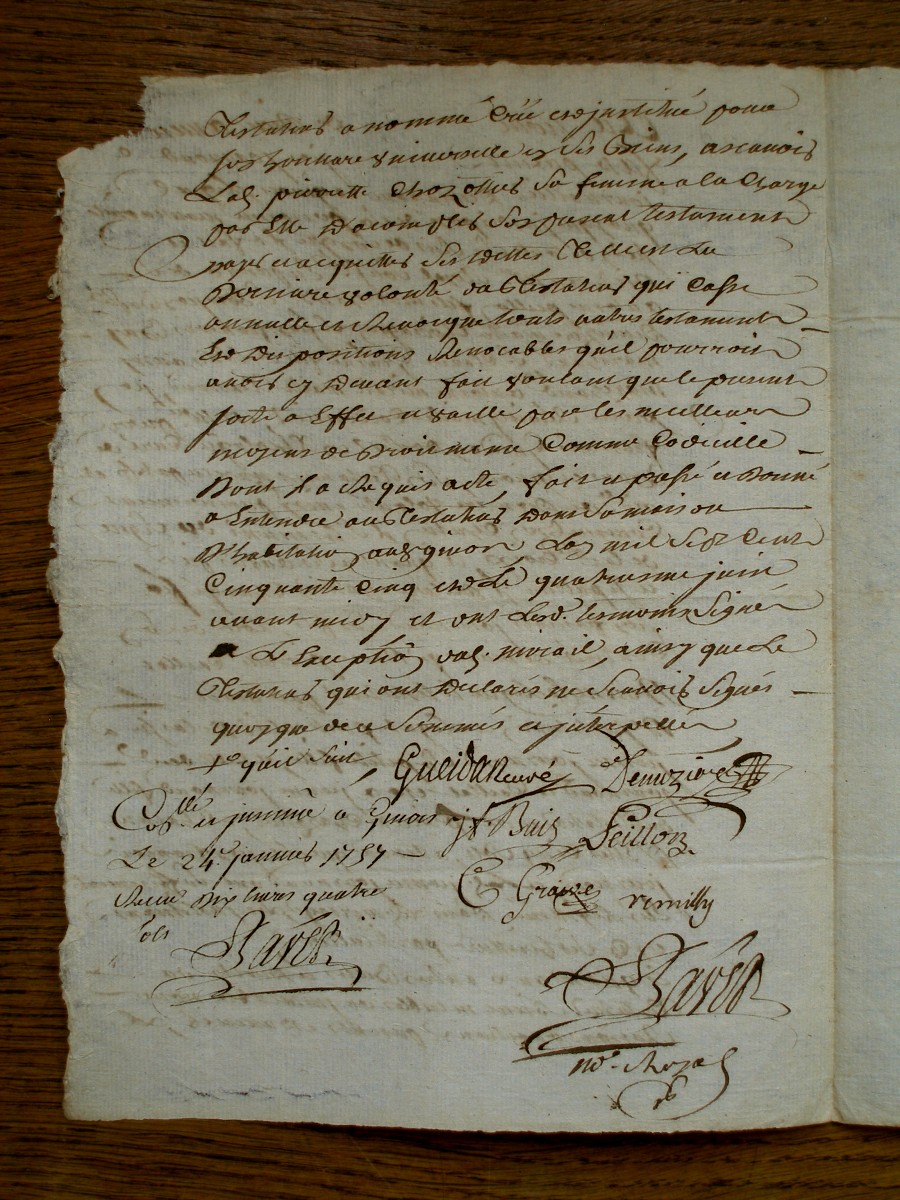 Testateur a nommé Créé et institué pour
son heritiere universelle en ses Biens, a scavoir
Lad. pierrette Chozottes sa femme a la Charge
par Elle D'acomplir son present testament
payer et acquitter ses dettes Telle est La
Derniere volonté du Testateur qui Casse
annulle et Revocque touts autres testaments
Et Dispositions Revocables qu'il pourroit
avoir cy devant fait voulant que le present
sorte a Effet et vaille par les meilleurs
moyens de Droit meme Comme Codicille
Dont Il a Requis acte, fait et passé et Donné
a Entendre au Testateur Dans sa maison
D'habitation aud givors, L'an mil Sept Cent
Cinquante Cinq et Le quatrieme juin
avant midy et ont Lesd. tesmoins Signé
a L'Exception dud. mivail, ainsy que Le
Testateur qui ont Declarés ne scavoir Signer
quoyque de ce sommés et interpellés
Gueidan curé Demiziere
Collé et insinué a Givors
J. Buis Peillon
Le 24e. janvier 1757
C Graive remilly
Receu Dix livres quatre
sols
Bavet
Bavet
no.re Royal